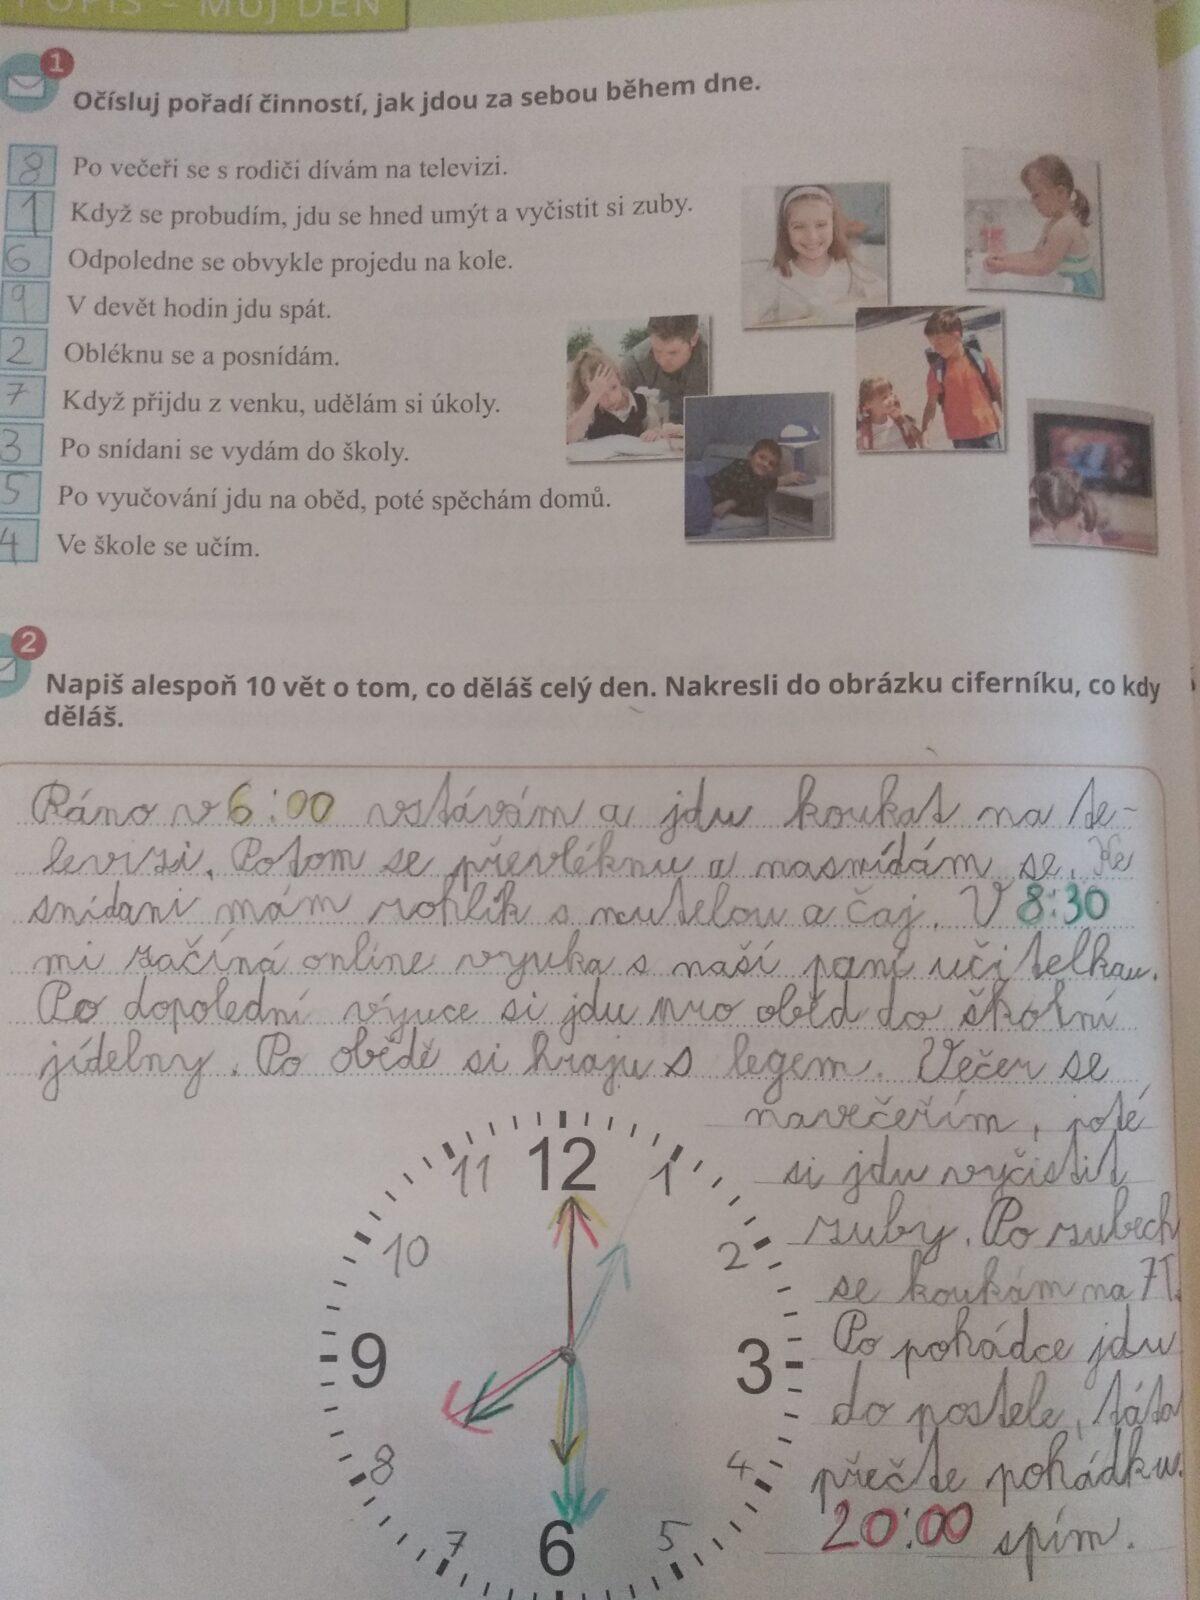 POPIS – MŮJ DEN
1
Očísluj pořadí činností, jak jdou za sebou během dne.
8 Po večeři se s rodiči dívám na televizi.
1 Když se probudím, jdu se hned umýt a vyčistit si zuby.
6 Odpoledne se obvykle projedu na kole.
9 V devět hodin jdu spát.
2 Obléknu se a posnídám.
7 Když přijdu z venku, udělám si úkoly.
3 Po snídani se vydám do školy.
5 Po vyučování jdu na oběd, poté spěchám domů.
4 Ve škole se učím.
2
Napiš alespoň 10 vět o tom, co děláš celý den. Nakresli do obrázku ciferníku, co kdy
děláš.
Ráno v 6:00 vstávám a jdu koukat na te-
levizi. Potom se převléknu a nasnídám se. Ke
snídani mám rohlík s nutelou a čaj. V 8:30
mi začíná online vyuka s naší paní učitelkou.
Po dopolední výuce si jdu pro oběd do školní
jídelny. Po obědě si hraju s legem. Večer se
navečeřím, poté
si jdu vyčistit
zuby. Po zubech
se koukám na
Po pohádce jdu
do postele, táta
přečte pohádku.
20:00 spím.
11 12 1
10 2
9 3
8 4
7 6 5